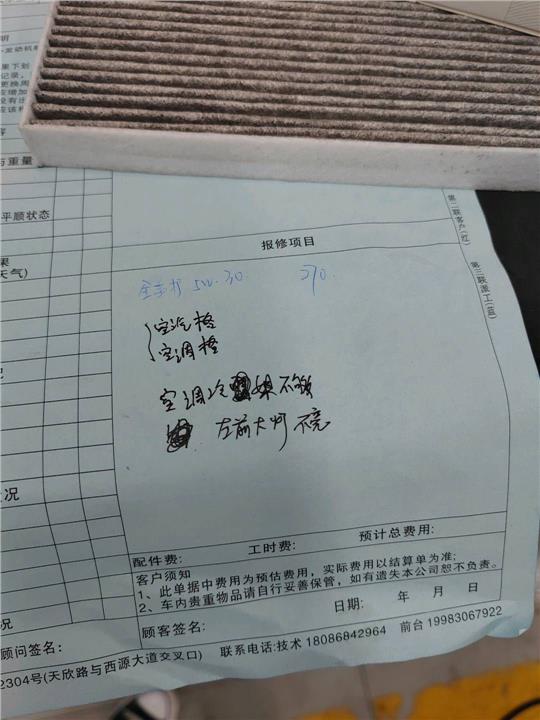 明
发动机舱
果下划
记录，
更换周
应增加
没有出
应该检
与重量
平顺状态
果
天气)
况
第二联客户(红)
第三联派工(蓝)
报修项目
5W-30 270.
空汽格
空调格
空调冷 媒不够
左前大灯 不亮
配件费: 工时费: 预计总费用:
客户须知
1、此单据中费用为预估费用，实际费用以结算单为准;
2、车内贵重物品请自行妥善保管，如有遗失本公司恕不负责。
日期: 年 月 日
顾客签名:
顾问签名:
2304号(天欣路与西源大道交叉口) 联系电话:技术 18086842964 前台 19983067922